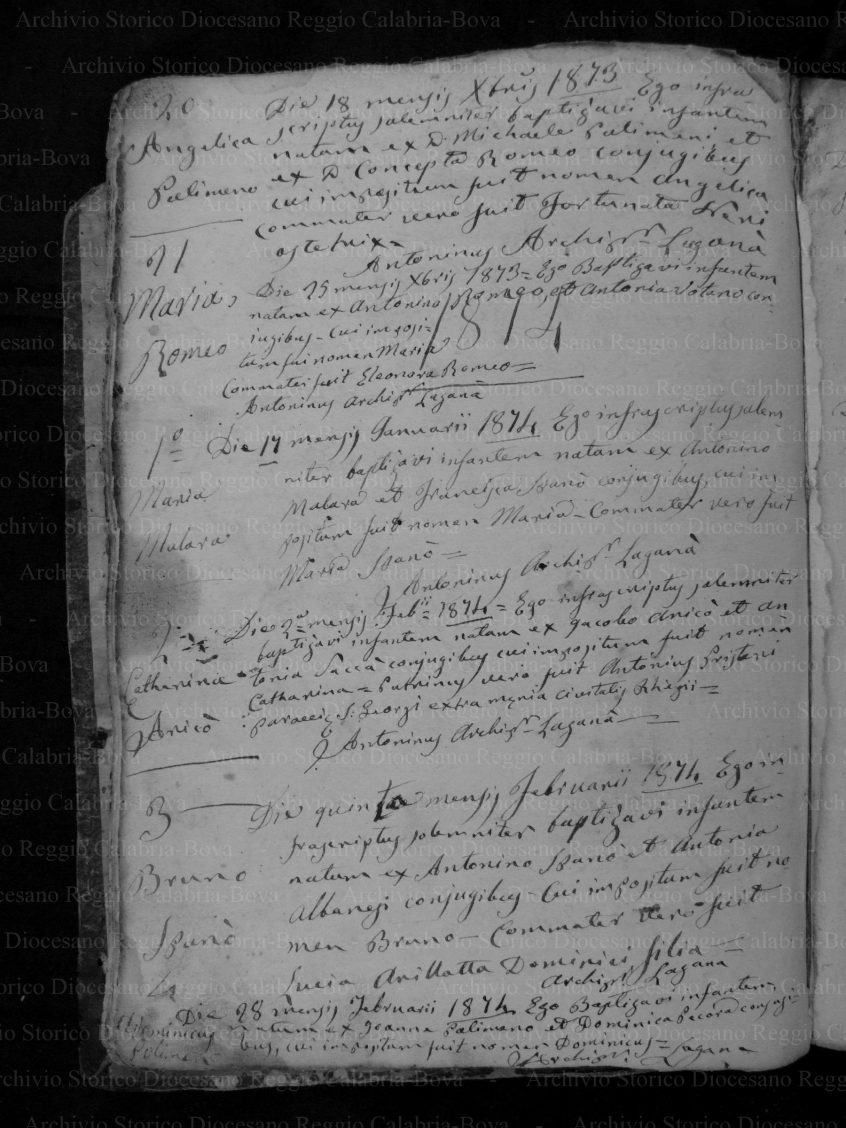 20
Angelica
Palimeno
Die 18 mensis Xbris 1873 Ego infra
scriptus solemniter baptizavi infantem
natam ex D. Michaele Palimeni et
ex D Concepta Romeo conjugibus
cui impositum fuit nomen Angelica
commater vero fuit Fortunata Neri
ostetrix
Antoninus Archipr Laganà
21
Maria
Romeo
Die 25 mensis Xbris 1873 = Ego Baptizavi infantem
natam ex Antonino Romeo, et Antonia Votano con-
jugibus - cui imposi-
tum fui nomen Maria
Commater fuit Eleonora Romeo =
Antoninus Archipr Laganà
1874
1°
Maria
Malara
Die 17 mensis Januarii 1874 Ego infrascriptus solem-
niter baptizavi infantem natam ex Antonino
Malara et Francisca Spanò conjugibus, cui im
positum fuit nomen Maria - Commater vero fuit
Maria Spanò =
Antoninus Archipr Laganà
2
Catharina
Aricò
Die 2a mensis Feb 1874 = Ego infrascriptus solemniter
baptizavi infantem natam ex Jacobo Aricò et An
tonia Saccà conjugibus cui impositum fuit nomen
Catharina = Patrinus vero fuit Antonius
S. Georgi extra menia civitatis Rhegii =
Antoninus Archipr Laganà
3
Bruno
Spanò
Die quinta mensis Februarii 1874 Ego in-
frascriptus solemniter baptizavi infantem
natum ex Antonino Spanò et Antonia
Albanesi conjugibus - Cui impositum fuit no
men Bruno - Commater vero fuit
Lucia Arillotta Dominici filia =
Archipr Laganà
4
Dominicus
Die 28 mensis Februarii 1874 Ego Baptizavi infantem
natum ex Joanne Palimeno et Dominica Pecora conjugi-
bus, cui impositum fuit nomen Dominicus =
Archipr Laganà